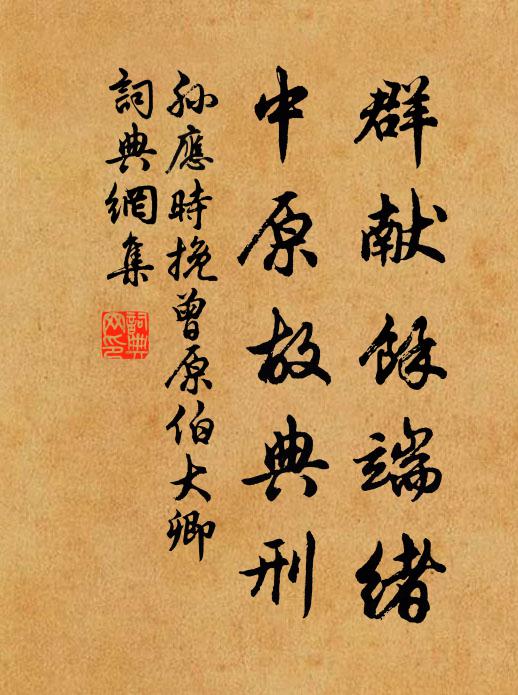 群献餘端緒
中原故典刑
孙應時挽曾原伯大卿
詞典網集
詞典
网印